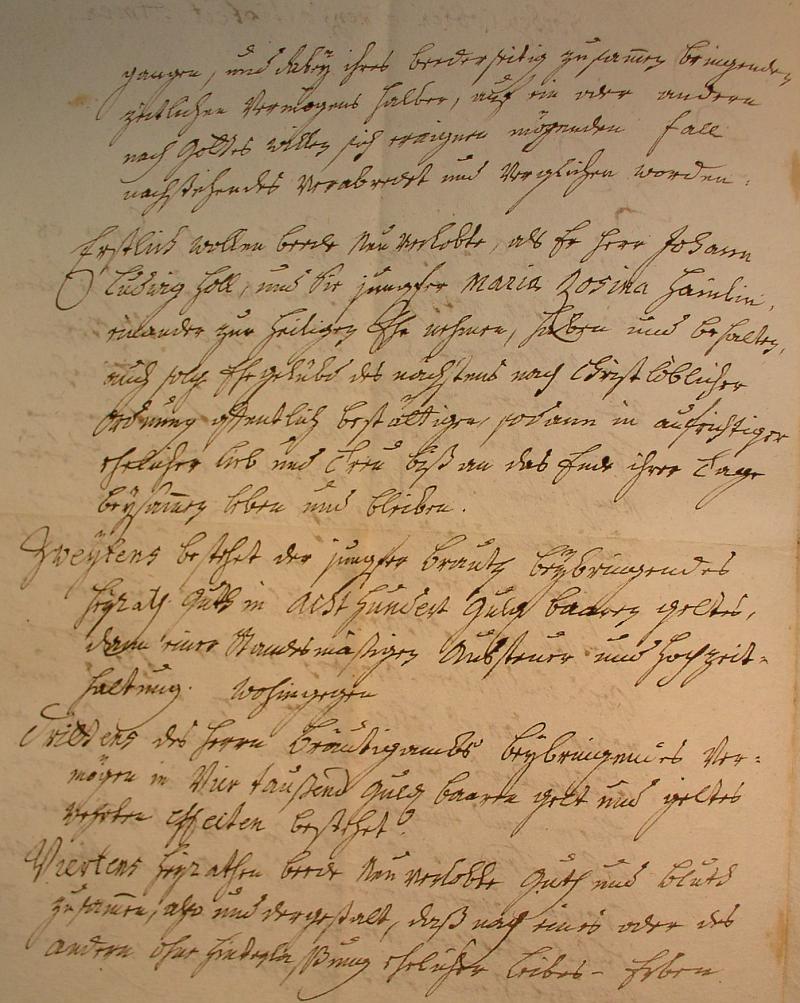 gangen, und dabey ihres beederseitig zusamen bringenden
zeitlichen Vermögens halber, auf ein oder andern
nach Gottes willen sich eraignen mögenden fall
nachstehendes verabredet und verglichen worden.
Erstlich wollen beede Neu verlobte, als Er Herr Johann
Ludwig Holl, und Sie Jungfer Maria Rosina
einander zur heiligen Ehe nehmen, haben und behalten,
auch solch Ehegelübd des nächstens nach Christlöblicher
Ordnung offentlich bestättigen, sodann in aufrichtiger
ehelicher Lieb und Treu biß an das Ende ihrer Tage
beysamen leben und bleiben.
Zweytens bestehet der Jungfer Brauth beybringendes
Heyrath Guth in Acht Hundert Guld baaren geltes,
dann einer Standesmäßigen Aussteuer und Hochzeit-
haltung. wohingegen
Drittens des Herrn Bräutigambs beybringendes Ver-
mögen in Vier taußend Guld baaren gelt und geltes
werthen Effecten bestehet.
Viertens heyrathen beede Neu verlobte Guth und Bluth
zusamen, also und dergestalt, daß nach eines oder des
andern ohne Hinterlaßung ehelicher Leibes-Erben